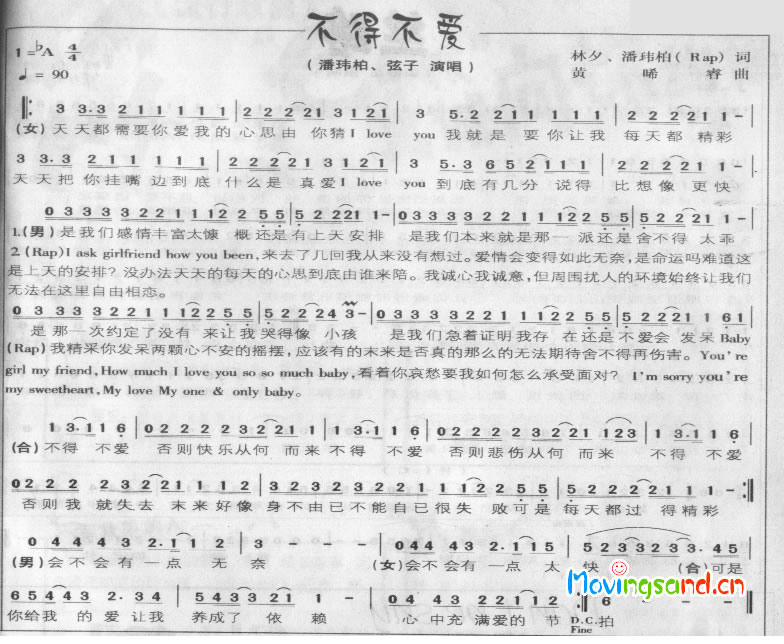 不得不爱
1=♭A 4/4
♩= 90
(潘玮柏、弦子 演唱)
林夕、潘玮柏(Rap) 词
黄 晞 睿 曲
3 3.3 2 1 1 1 1 1 | 2 2 2 2 21 3 121 | 3 5.2 2 21 1 1 1 | 2 2 2 2 21 1 - |
(女) 天天都需要你爱我的心思由 你猜I love you我就是 要你让我 每天都 精彩
3 3.3 2 1 1 1 1 1 | 2 2 2 2 21 3 121 | 3 5.3 6 5 2 1 1 1 | 2 2 2 2 21 1 - |
天天把你挂嘴边到底 什么是 真爱I love you 到底有几分 说得 比想像 更快
0 3 3 3 3 3 2 2 1 1 112 2 5 5 | 5 2 2 221 1 - | 0 3 3 3 3 3 2 2 1 1 112 2 5 5 | 5 2 2 221 1 - |
1.(男)是我们感情丰富太慷 概还是有上天安排 是我们本来就是那一 派还是舍不得 太乖
2.(Rap)I ask girlfriend how you been,来去了几回我从来没有想过。爱情会变得如此无奈,是命运吗难道这
是上天的安排?没办法天天的每天的心思到底由谁来陪。我诚心我诚意,但周围扰人的环境始终让我们
无法在这里自由相恋。
0 3 3 3 3 3 2 2 1 1 112 2 5 5 | 5 2 2 2 24 3 - | 0 3 3 3 3 3 2 2 1 1 112 2 5 5 | 5 2 2 2 21 1 61 |
是那一次约定了没有 来让我 哭得像 小孩 是我们急着证明我存 在还是 不爱会 发呆Baby
(Rap)我精采你发呆两颗心不安的摇摆,应该有的末来是否真的那么的无法期待舍不得再伤害。You're
girl my friend,How much I love you so so much baby,看着你哀愁要我如何怎么承受面对? I'm sorry you're
my sweetheart,My love My one & only baby。
1 3.1 1 6 | 0 2 2 2 2 3 2 21 1 | 1 3.1 1 6 | 0 2 2 2 2 3 2 21 123 | 1 3.1 1 6 |
(合)不得 不爱 否则快乐从何 而来 不得 不爱 否则悲伤从何 而来 不得 不爱
0 2 2 2 2 3 2 2 1 1 1 2 | 3 2 3 2 3 2 2 1 1 1 1 2 2 5 5 | 5 2 2 2 21 1 - :|
否则我 就失去 末来好像 身不由已不能自已很失 败可是 每天都过 得精彩
0 4 4 4 3 2.1 1 2 | 3 - - - | 0 4 4 4 3 2.1 1 5 | 5 2 3 3 2 3 3.4 5 |
(男)会不会有一点 无奈 (女)会不会有一点 太 快 (合)可是
6 5 4 4 3 4 2.1 | 5 4 3 4 4 3 3 1 | 1 4 3 4 4 5 1 2 :| 6 - - - ||
你给我 的 爱让我 养成了 依 赖 心中充 满爱的 节 D.C.拍
Fine
Movingsand.cn